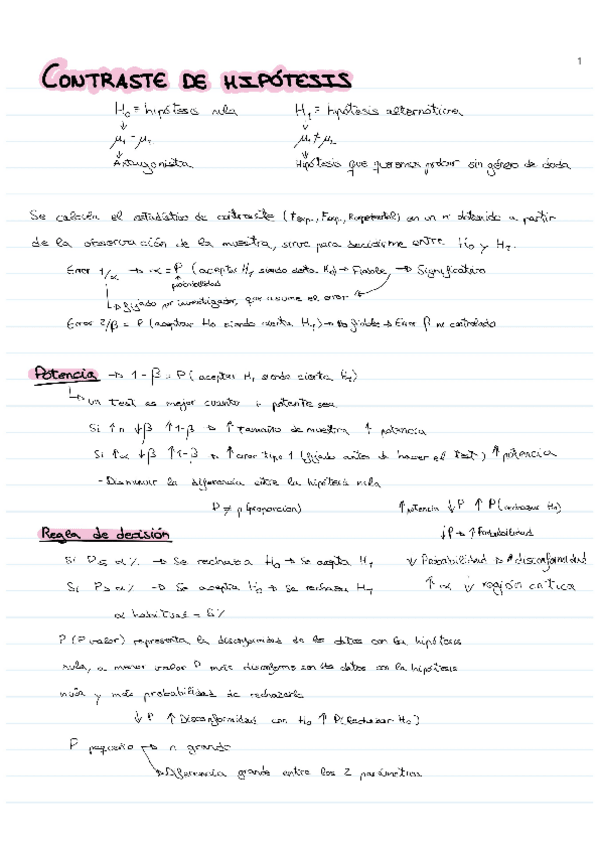 1
CONTRASTE DE HIPÓTESIS
H₀ = hipótesis nula H₁ = hipótesis alternativa
↓ ↓
μ₁ = μ₂ μ₁ ≠ μ₂
↓ ↓
Antagonista Hipótesis que queremos probar sin género de duda
Se calcula el estadístico de contraste (texp., Fexp., Rexperimental) en un nº obtenido a partir
de la observación de la muestra, sirve para decidirme entre H₀ y H₁.
Error 1/α → α = P (aceptar H₁ siendo cierta H₀) → Fiable → Significativo
probabilidad
↳ fijado por investigador, que asume el error
Error 2/β = P (aceptar H₀ siendo cierta H₁) → No fiable → Error β no controlado
Potencia → 1 - β = P (aceptar H₁ siendo cierta H₁)
↳ un test es mejor cuanto + potente sea
Si ↑n ↓β ↑1-β → ↑ tamaño de muestra ↑ potencia
Si ↑α ↓β ↑1-β → ↑ error tipo 1 (fijado antes de hacer el test) ↑ potencia
- Disminuir la diferencia entre la hipótesis nula
P ≠ p (proporción) ↑ potencia ↓P ↑ P (rechazar H₀)
↓P → ↓ Probabilidad
Regla de decisión
Si P ≤ α% → Se rechaza H₀ → Se acepta H₁ ↓ Probabilidad → disconformidad
Si P > α% → Se acepta H₀ → Se rechaza H₁ ↑ α ↓ región crítica
α habitual = 5%
P (P valor) representa la disconformidad de los datos con la hipótesis
nula, a menor valor P más disconformes son los datos con la hipótesis
nula y más probabilidad de rechazarla
↓P ↑ Disconformidad con H₀ ↑ P(rechazar H₀)
P pequeño → n grande
↘ Diferencia grande entre los 2 parámetros